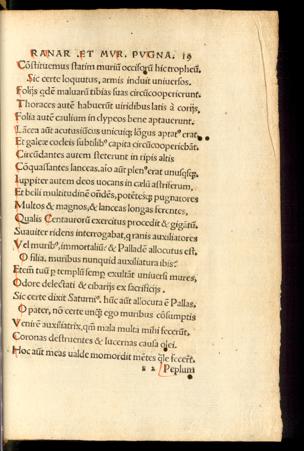 RANAR .ET MVR. PVGNA. 19
Cōstituemus statim muriū occisorū hic tropheū.
Sic certe loquutus, armis induit uniuersos.
Folijs qdē maluarū tibias suas circūcooperierunt.
Thoraces autē habuerūt uiridibus latis à corijs,
Folia autē caulium in clypeos bene aptauerunt.
Lācea aūt acutus iūcus unicuiq; lōgus aptatꝰ erat
Et galeæ cocleis subtilibꝰ capita circūcooperiebāt.
Circūdantes autem steterunt in ripis altis
Cōquassantes lanceas, aīo aūt plenꝰ erat unusqsq;
Iuppiter autem deos uocans in cælū astriferum,
Et belli multitudinē ondēs, potētesq; pugnatores
Multos & magnos, & lanceas longas ferentes,
Qualis Centaurorū exercitus procedit & gigātū.
Suauiter ridens interrogabat, q ranis auxiliatores
Vel muribꝰ, immortaliū: & Palladē allocutus est,
O filia. muribus nunquid auxiliatura ibis:
Etem tuū p templū semp exultāt uniuersi mures,
Odore delectati & cibarijs ex sacrificijs.
Sic certe dixit Saturniꝰ. hūc aūt allocuta ē Pallas.
O pater, nō certe unq̄ ego muribus cōsumptis
Venirē auxiliatrix, qm̄ mala multa mihi fecerūt,
Coronas destruentes & lucernas causa olei.
Hoc aūt meas ualde momordit mētes qle fecert.
Peplum